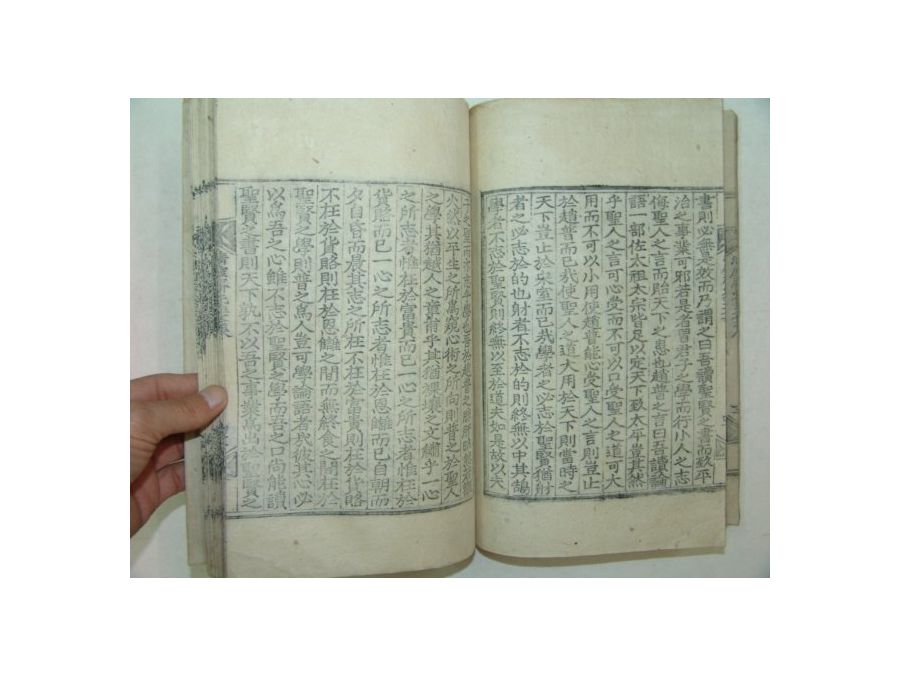 書則必無是效而乃謂之曰吾讀聖賢之書而致平
治之事業可邪若是者習君子之學而行小人之志
侮聖人之言而貽天下之患也趙普之言曰吾讀論
語一部佐太祖太宗皆足以定天下致太平豈其然
乎聖人之言可心受而不可以口受聖人之道可大
用而不可以小用使趙普能心受聖人之言則豈止
於趙普而已哉使聖人之道大用於天下則當時之
天下豈止於宋室而已哉學者之必志於聖賢猶射
者之必志於的也射者不志於的則終無以中其鵠
學者不志於聖賢則終無以至於道夫如是故以天
火然以平生之所爲觀心術之所向則普之於聖人
之學其猶越人之章甫乎其猶裸壤之文繡乎一心
之所志者惟在於富貴而已一心之所志者惟在於
貨賂而已一心之所志者惟在於恩讎而已自朝而
夕自昏而晨其志之所在不在於富貴則在於貨賂
不在於貨賂則在於恩讎之間而無終食之間在於
聖賢之學則普之爲人豈可學論語者與彼其心必
以爲吾之心雖不志於聖賢之學而吾之口尚能讀
聖賢之書則天下孰不以吾之事業爲出於聖賢之